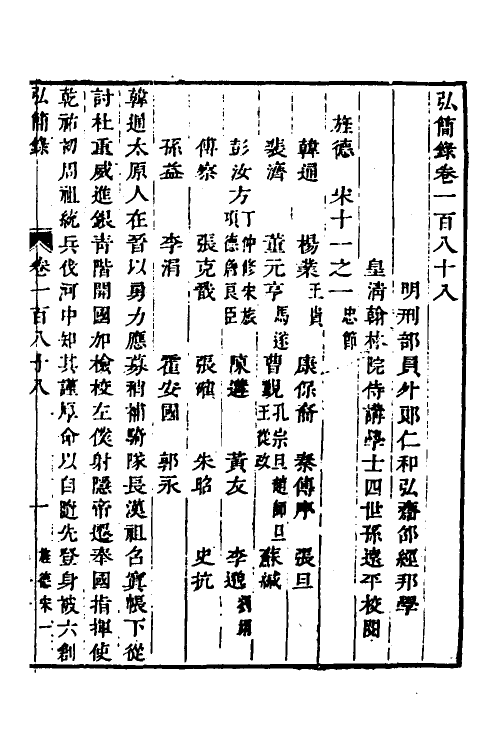 弘簡錄卷一百八十八
明刑部員外郎仁和弘齋邵經邦學
皇清翰林院侍講學士四世孫遠平校閱
旌德 宋十一之一 忠節
韓通 楊業 王貴 康保裔 秦傳序 張旦
裴濟 董元亨 馬遂 曹覲 孔宗旦 趙師旦 王從政 蘇緘
彭汝方 丁仲修 宋旅 項德 詹良臣 陳遘 黃友 李邈 劉翊
傅察 張克戩 張確 朱昭 史抗
孫益 李涓 霍安國 郭永
韓通太原人在晉以勇力應募稍補騎隊長漢祖召寘帳下從
討杜重威進銀青階開國加檢校左僕射隱帝遷奉國指揮使
乾祐初周祖統兵伐河中知其謹厚命以自隨先登身被六創
弘簡錄 卷一百八十八 一 旌德宋一